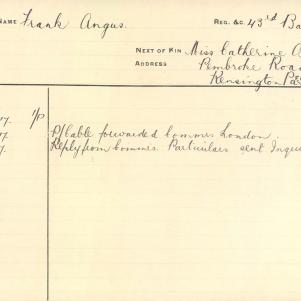 NAME Frank Angus. REG. &C. 43rd Ba
NEXT OF KIN Miss Catherine A
ADDRESS Pembroke Road
Kensington Pa
17. 1/P P/Cable forwarded Commrs London.
17. Reply from Commrs. Particulars sent Inqu